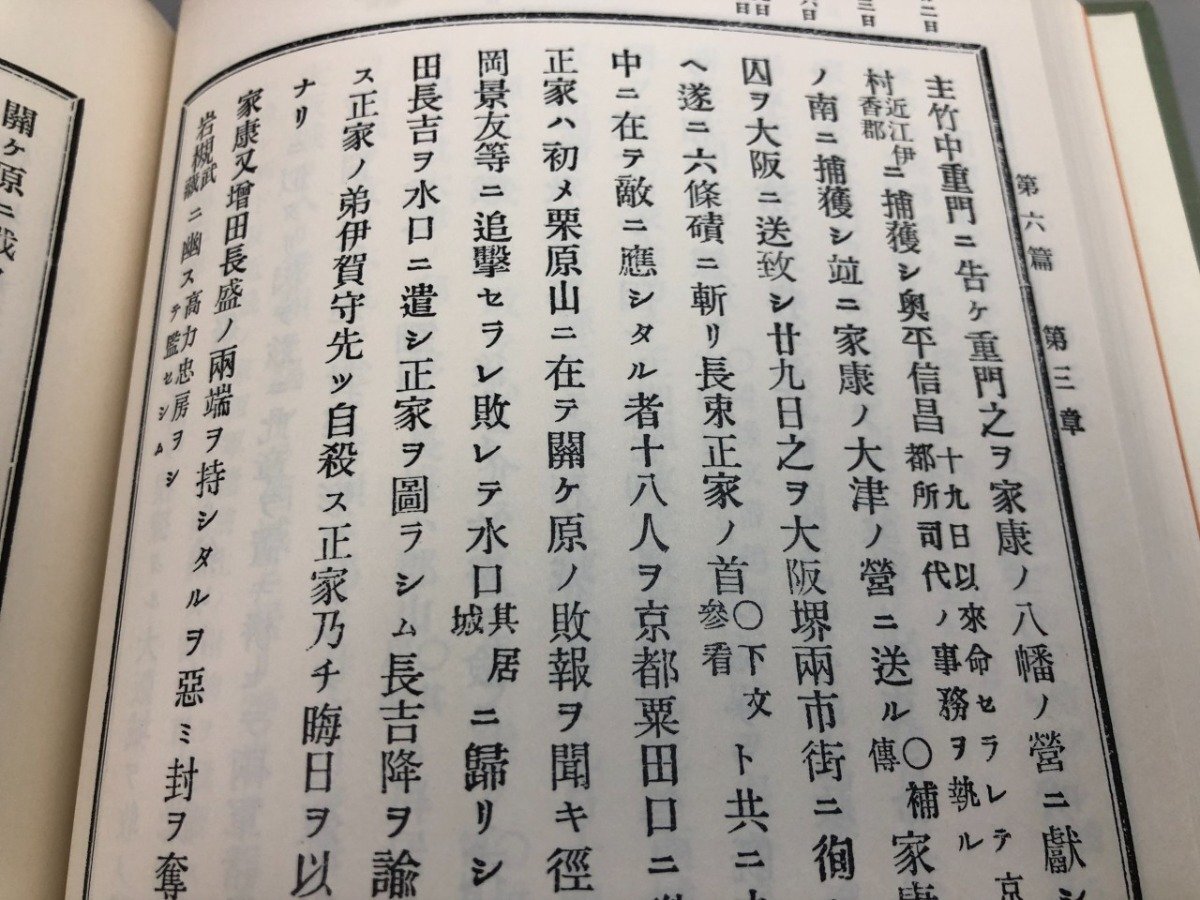 第六篇 第三章
主竹中重門ニ告ケ重門之ヲ家康ノ八幡ノ營ニ獻シ
村 近江伊香郡 ニ捕獲シ奥平信昌 十九日以來命セラレテ京都所司代ノ事務ヲ執ル 〇補傳 家康
ノ南ニ捕獲シ竝ニ家康ノ大津ノ營ニ送ル
囚ヲ大阪ニ送致シ廿九日之ヲ大阪堺兩市街ニ徇
ヘ遂ニ六條磧ニ斬リ長束正家ノ首 〇下文參看 ト共ニ
中ニ在テ敵ニ應シタル者十八人ヲ京都粟田口ニ
正家ハ初メ栗原山ニ在テ關ヶ原ノ敗報ヲ聞キ徑
岡景友等ニ追擊セラレ敗レテ水口 其居城 ニ歸リシ
田長吉ヲ水口ニ遣シ正家ヲ圖ラシム長吉降ヲ諭
ス正家ノ弟伊賀守先ッ自殺ス正家乃チ晦日ヲ以
ナリ
家康又增田長盛ノ兩端ヲ持シタルヲ惡ミ封ヲ奪
岩槻 武藏 ニ幽ス 高力忠房ヲシテ監セシム
關ヶ原ニ戰